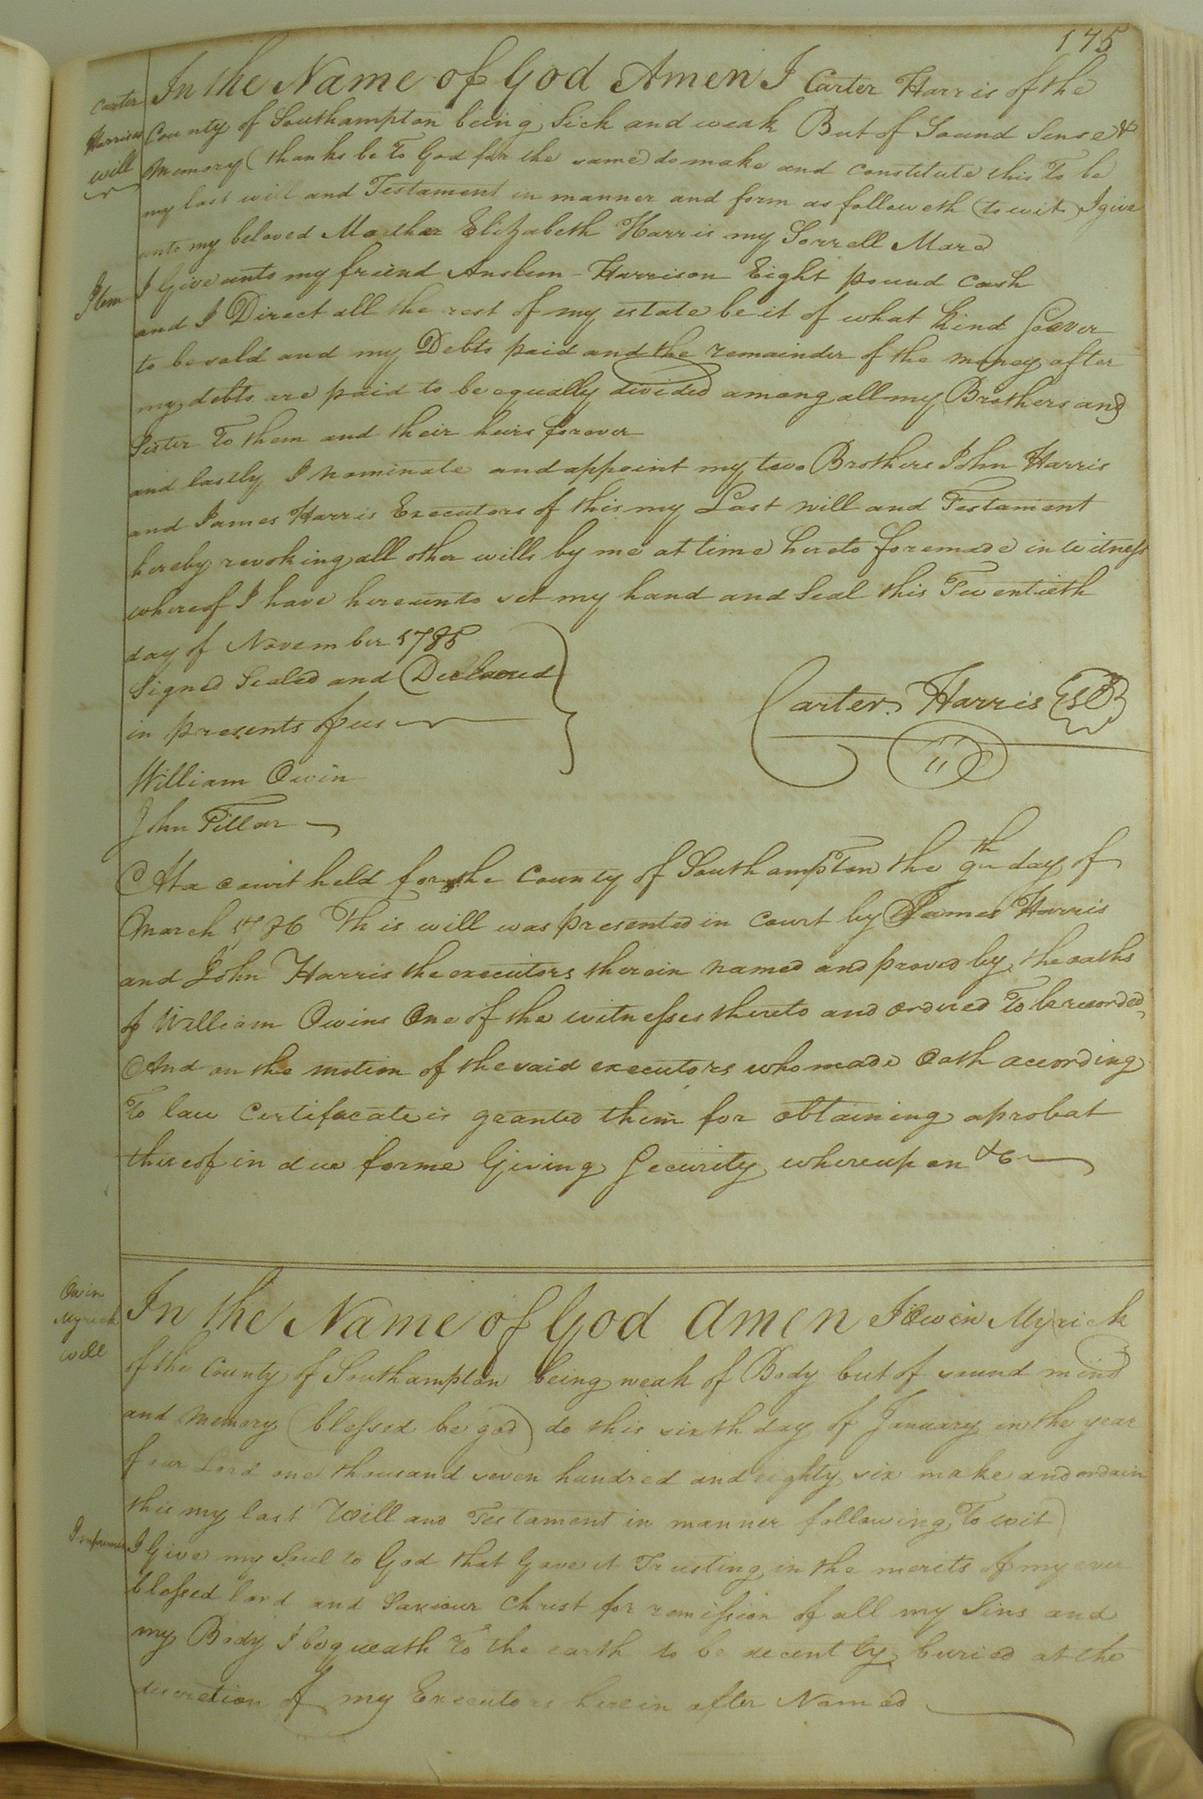 175
Carter Harriss will
In the Name of God Amen I Carter Harris of the
County of Southampton being Sick and weak But of Sound Sense &
Memory (thanks be to God for the same) do make and constitute this To be
my last will and Testament in manner and form as followeth (to wit) I give
unto my beloved Mother Elizabeth Harris my Sorrell Mare
Item I Give unto my friend Anslem Harrison Eight pound cash
and I Direct all the rest of my estate be it of what kind soever
to be sold and my Debts paid and the remainder of the money after
my debts are paid to be equally divided among all my Brothers and
Sister To them and their heirs forever
and lastly I nominate and appoint my two Brothers John Harris
and James Harris Executors of this my Last will and Testament
hereby revoking all other wills by me at time hereto foremade in witness
whereof I have hereunto set my hand and Seal this Twentieth
day of November 1785
Signed Sealed and Declared
in presents of us
Carter Harris
William Owin
John Fillar
At a court held for the County of Southampton the 9th day of
March 1786 This will was presented in court by James Harris
and John Harris the executors therein named and proved by the oaths
of William Owins One of the witnesses thereto and ordered To be recorded
And on the motion of the said executors who made Oath according
To law Certifacate is granted them for obtaining a probat
thereof in due forme Giving Security whereupon &c
Owin Myrick will
In the Name of God amen I Owin Myrick
of the County of Southampton being weak of Body but of sound mind
and memory (blessed be god) do this sixth day of January in the year
of our Lord one thousand seven hundred and eighty six make and ordain
this my last Will and Testament in manner following To wit)
I Give my Soul to God that Gave it Trusting in the merits of my ever
blessed lord and Saviour Christ for remission of all my Sins and
my Body I bequeath To the earth to be decently buried at the
discretion of my Executors herein after Named